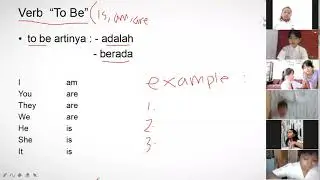 Verb "To Be" (is, am, are
• to be artinya : - adalah
- berada
I am
You are
They are
We are
He is
She is
It is
example :
1.
2.
3.